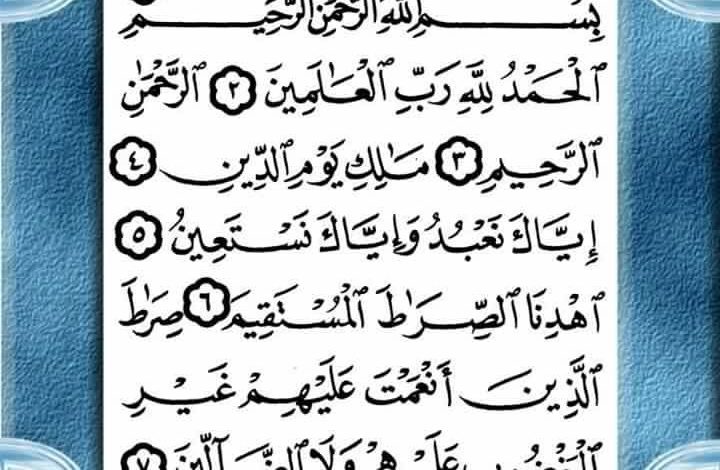 بِسْمِ ٱللَّهِ ٱلرَّحْمَٰنِ ٱلرَّحِيمِ
ٱلْحَمْدُ لِلَّهِ رَبِّ ٱلْعَٰلَمِينَ ٢ ٱلرَّحْمَٰنِ
ٱلرَّحِيمِ ٣ مَٰلِكِ يَوْمِ ٱلدِّينِ ٤
إِيَّاكَ نَعْبُدُ وَإِيَّاكَ نَسْتَعِينُ ٥
ٱهْدِنَا ٱلصِّرَٰطَ ٱلْمُسْتَقِيمَ ٦ صِرَٰطَ
ٱلَّذِينَ أَنْعَمْتَ عَلَيْهِمْ غَيْرِ
ٱلْمَغْضُوبِ عَلَيْهِمْ وَلَا ٱلضَّآلِّينَ ٧